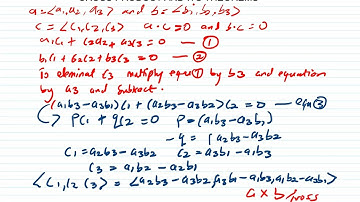 a = <a1, a2, a3> and b = <b1, b2, b3>
c = <c1, c2, c3> a · c = 0 and b · c = 0
a1c1 + c2a2 + a3c3 = 0 — ①
b1c1 + b2c2 + b3c3 = 0 — ②
To eleminal c3 multiply equ① by b3 and equation
by a3 and subtract.
(a1b3 - a3b1)c1 + (a2b3 - a3b2)c2 = 0 — eqn③
pc1 + qc2 = 0 p = (a1b3 - a3b1)
-q = (a2b3 - a3b2
c1 = a2b3 - a3b2 c2 = a3b1 - a1b3
c3 = a1b2 - a2b1
<c1, c2 c3> = <a2b3 - a3b2, a3b1 - a1b3, a1b2 - a2b1>
a x b cross